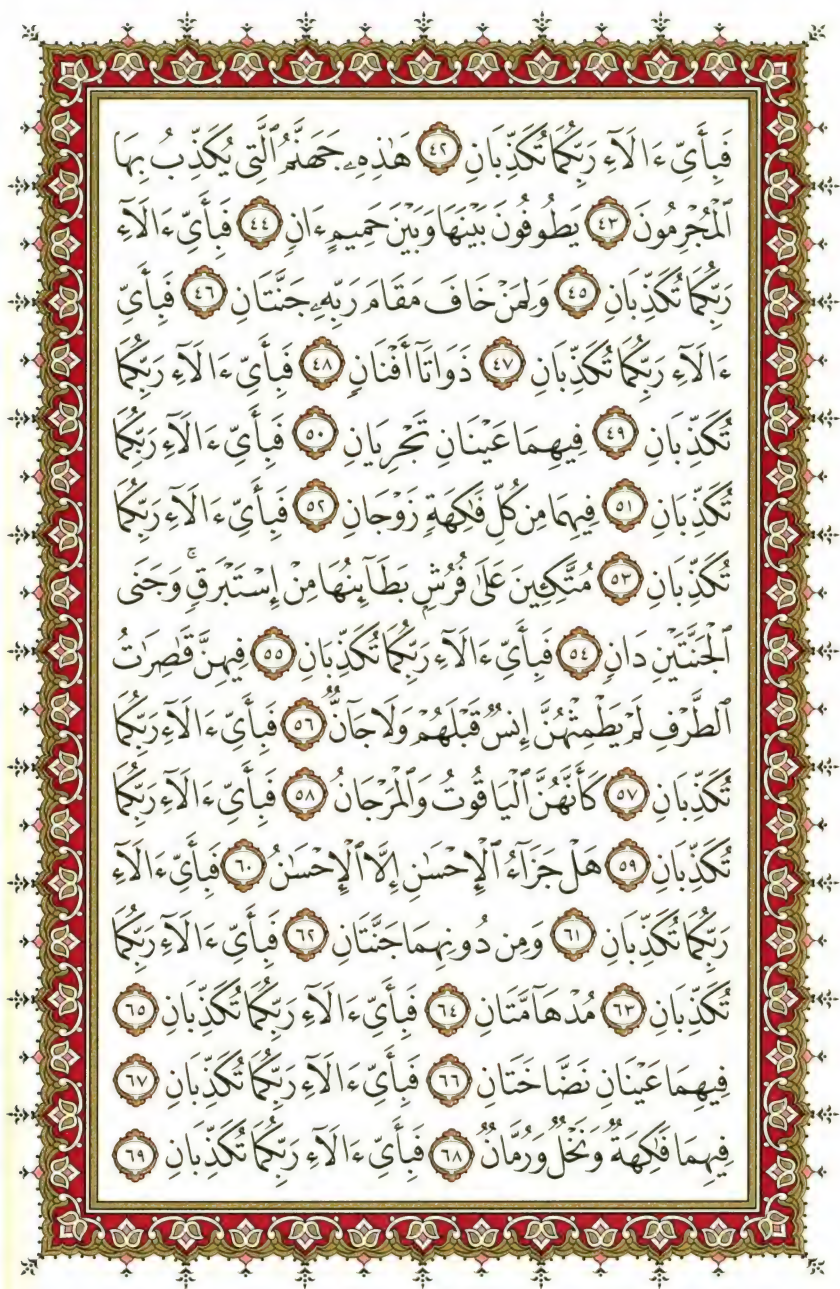 فَبِأَيِّ ءَالَآءِ رَبِّكُمَا تُكَذِّبَانِ ٤٢ هَٰذِهِۦ جَهَنَّمُ ٱلَّتِى يُكَذِّبُ بِهَا
ٱلْمُجْرِمُونَ ٤٣ يَطُوفُونَ بَيْنَهَا وَبَيْنَ حَمِيمٍ ءَانٍ ٤٤ فَبِأَيِّ ءَالَآءِ
رَبِّكُمَا تُكَذِّبَانِ ٤٥ وَلِمَنْ خَافَ مَقَامَ رَبِّهِۦ جَنَّتَانِ ٤٦ فَبِأَيِّ
ءَالَآءِ رَبِّكُمَا تُكَذِّبَانِ ٤٧ ذَوَاتَآ أَفْنَانٍ ٤٨ فَبِأَيِّ ءَالَآءِ رَبِّكُمَا
تُكَذِّبَانِ ٤٩ فِيهِمَا عَيْنَانِ تَجْرِيَانِ ٥٠ فَبِأَيِّ ءَالَآءِ رَبِّكُمَا
تُكَذِّبَانِ ٥١ فِيهِمَا مِن كُلِّ فَٰكِهَةٍ زَوْجَانِ ٥٢ فَبِأَيِّ ءَالَآءِ رَبِّكُمَا
تُكَذِّبَانِ ٥٣ مُتَّكِـِٔينَ عَلَىٰ فُرُشٍۭ بَطَآئِنُهَا مِنْ إِسْتَبْرَقٍ ۚ وَجَنَى
ٱلْجَنَّتَيْنِ دَانٍ ٥٤ فَبِأَيِّ ءَالَآءِ رَبِّكُمَا تُكَذِّبَانِ ٥٥ فِيهِنَّ قَٰصِرَٰتُ
ٱلطَّرْفِ لَمْ يَطْمِثْهُنَّ إِنسٌ قَبْلَهُمْ وَلَا جَآنٌّ ٥٦ فَبِأَيِّ ءَالَآءِ رَبِّكُمَا
تُكَذِّبَانِ ٥٧ كَأَنَّهُنَّ ٱلْيَاقُوتُ وَٱلْمَرْجَانُ ٥٨ فَبِأَيِّ ءَالَآءِ رَبِّكُمَا
تُكَذِّبَانِ ٥٩ هَلْ جَزَآءُ ٱلْإِحْسَٰنِ إِلَّا ٱلْإِحْسَٰنُ ٦٠ فَبِأَيِّ ءَالَآءِ
رَبِّكُمَا تُكَذِّبَانِ ٦١ وَمِن دُونِهِمَا جَنَّتَانِ ٦٢ فَبِأَيِّ ءَالَآءِ رَبِّكُمَا
تُكَذِّبَانِ ٦٣ مُدْهَآمَّتَانِ ٦٤ فَبِأَيِّ ءَالَآءِ رَبِّكُمَا تُكَذِّبَانِ ٦٥
فِيهِمَا عَيْنَانِ نَضَّاخَتَانِ ٦٦ فَبِأَيِّ ءَالَآءِ رَبِّكُمَا تُكَذِّبَانِ ٦٧
فِيهِمَا فَٰكِهَةٌ وَنَخْلٌ وَرُمَّانٌ ٦٨ فَبِأَيِّ ءَالَآءِ رَبِّكُمَا تُكَذِّبَانِ ٦٩